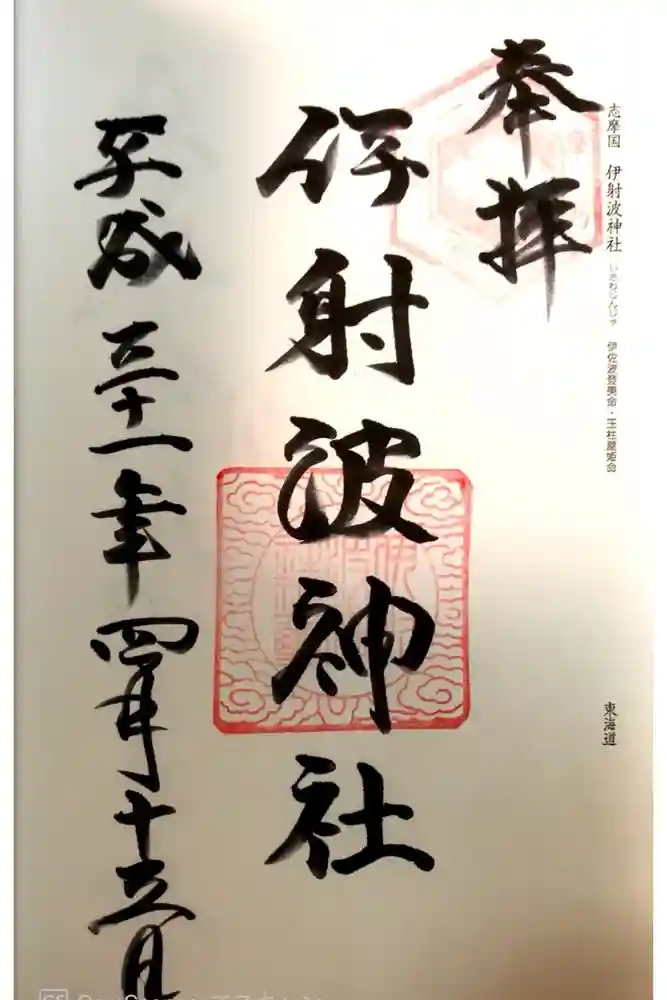 志摩国 伊射波神社 いざわじんじゃ 伊佐波登美命・玉柱屋姫命
東海道
奉拝
伊射波神社
平成三十一年四月十三日